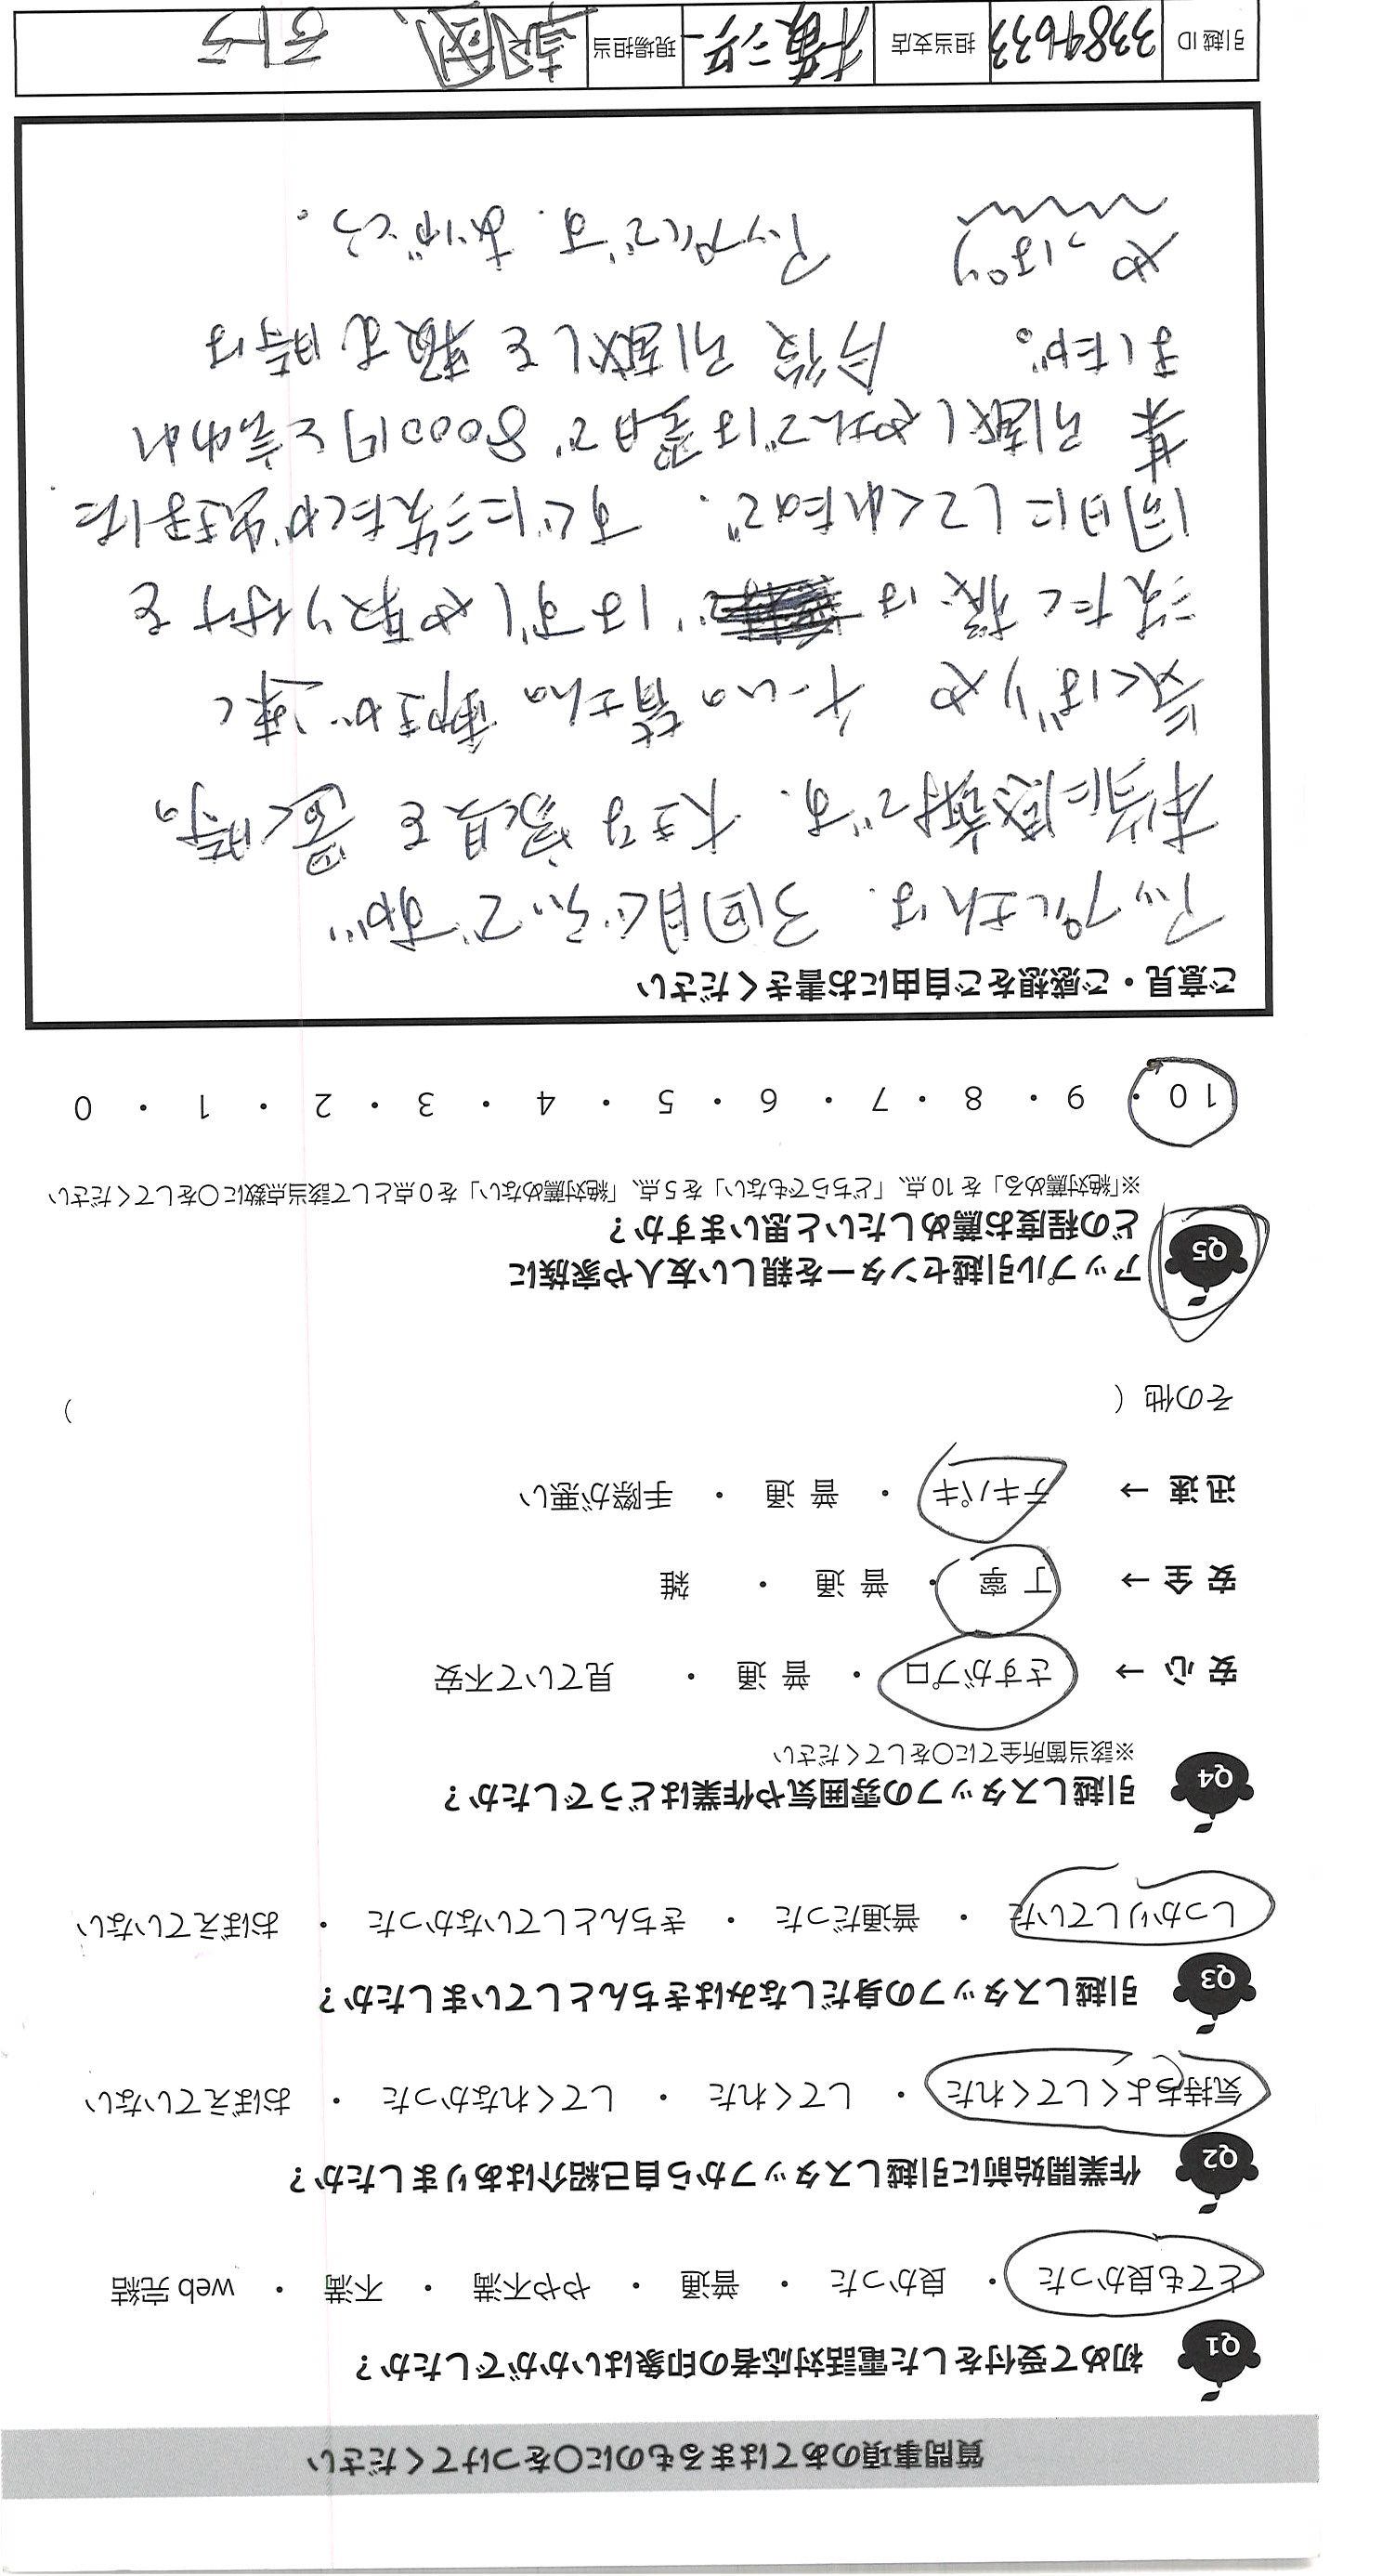 質問事項のあてはまるものに〇をつけてください
Q1 初めて受付をした電話対応者の印象はいかがでしたか？
とても良かった ・ 良かった ・ 普通 ・ やや不満 ・ 不満 ・ web 完結
Q2 作業開始前に引越しスタッフから自己紹介はありましたか？
気持ちよくしてくれた ・ してくれた ・ してくれなかった ・ おぼえていない
Q3 引越しスタッフの身だしなみはきちんとしていましたか？
しっかりしていた ・ 普通だった ・ きちんとしていなかった ・ おぼえていない
Q4 引越しスタッフの雰囲気や作業はどうでしたか？
※該当箇所全てに〇をしてください
安心 → さすがプロ ・ 普通 ・ 見ていて不安
安全 → 丁寧 ・ 普通 ・ 雑
迅速 → テキパキ ・ 普通 ・ 手際が悪い
その他（ ）
Q5 アップル引越センターを親しい友人や家族に
どの程度お薦めしたいと思いますか？
※「絶対薦める」を10点、「どちらでもない」を5点、「絶対薦めない」を0点として該当点数に〇をしてください
10 ・ 9 ・ 8 ・ 7 ・ 6 ・ 5 ・ 4 ・ 3 ・ 2 ・ 1 ・ 0
ご意見・ご感想をご自由にお書きください
アップルさんは、3回目ぐらいですが
本当に感謝です。大きな家具を置く時の
気くばりや 皆さんの動きが速く
洗たく機は はずしや取り付けを
同日にしてくれたので、すぐに洗たくが出来ました
某引越しやさんでは翌日で8000円と言われ
ましたが。 今後引越しを頼む時は
やっぱり アップルです。ありがとう。
引越ID 3384633 担当支店 現場担当